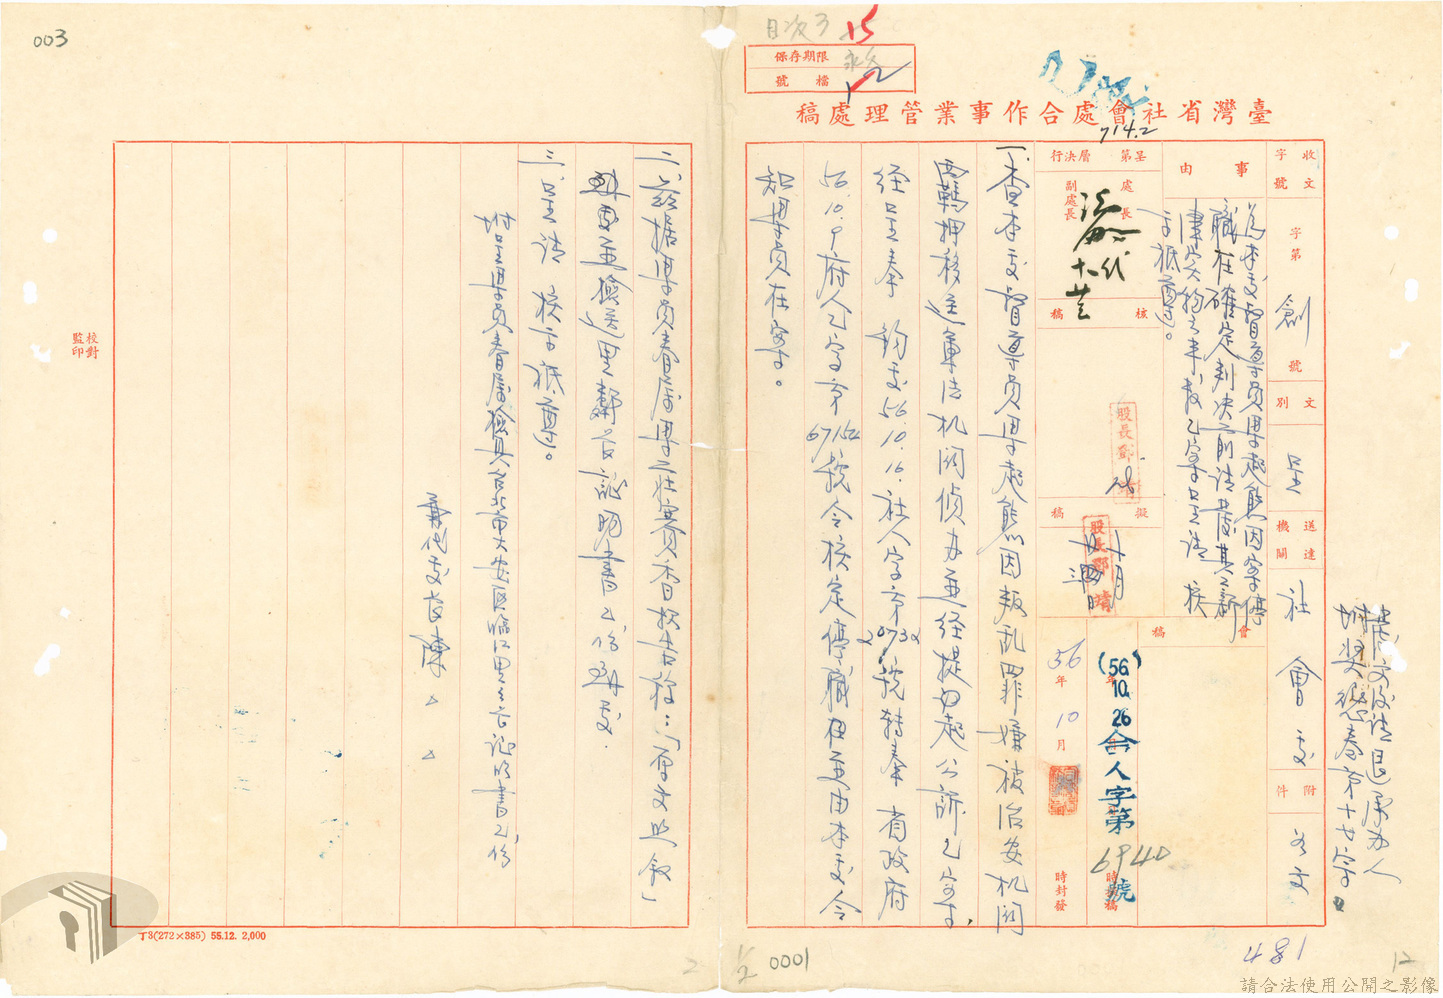 003
目次3
15
保存期限
永久
檔號
臺灣省社會處合作事業管理處稿
714.2
收文
字號
字第
創
號
文別
呈
送達機關
社會處
附件
如文
事由
為本處督導員畢超態因案停
職在確定判決前請發其薪
津實物之半數乙案呈請 核
示祇遵。
第 層決行
處長
副處長
代
核稿
股長鄭靖
擬稿
股長鄭靖
十月
會稿
56年10月 日
時封發
(56)
10. 26
合人字第
6940
號
一、查本處督導員畢超態因叛乱罪嫌被治安机関
羈押移送軍法机関偵办並経提起公訴乙案,
経呈奉 鈞處56.10.16.社人字第20732號轉奉 省政府
56.10.9府人乙字第67152號令核定停職在並由本處令
知畢員在案。
二、茲据畢員眷属畢莊賽香報告称:「原文照叙」
到處並檢送里鄰長証明書乙份到處.
三、呈請 核示祇遵。
附呈畢員眷属檢具台北市大安區臨江里里長証明書乙份
兼代處長陳
校對
監印
丁3(272×385) 55.12. 2,000
1/2
0001
2
481
12
發文後請退原办人
請合法使用公開之影像